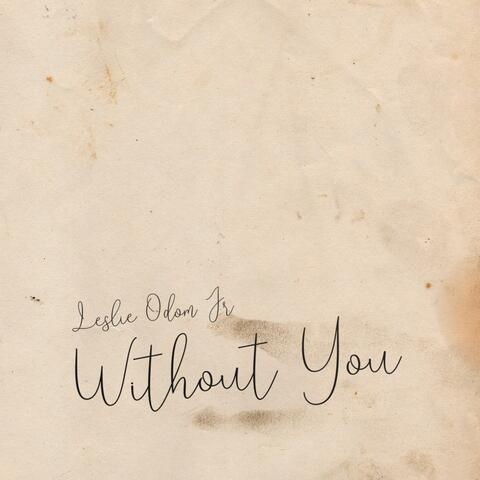 Leslie Odom Jr
Without You